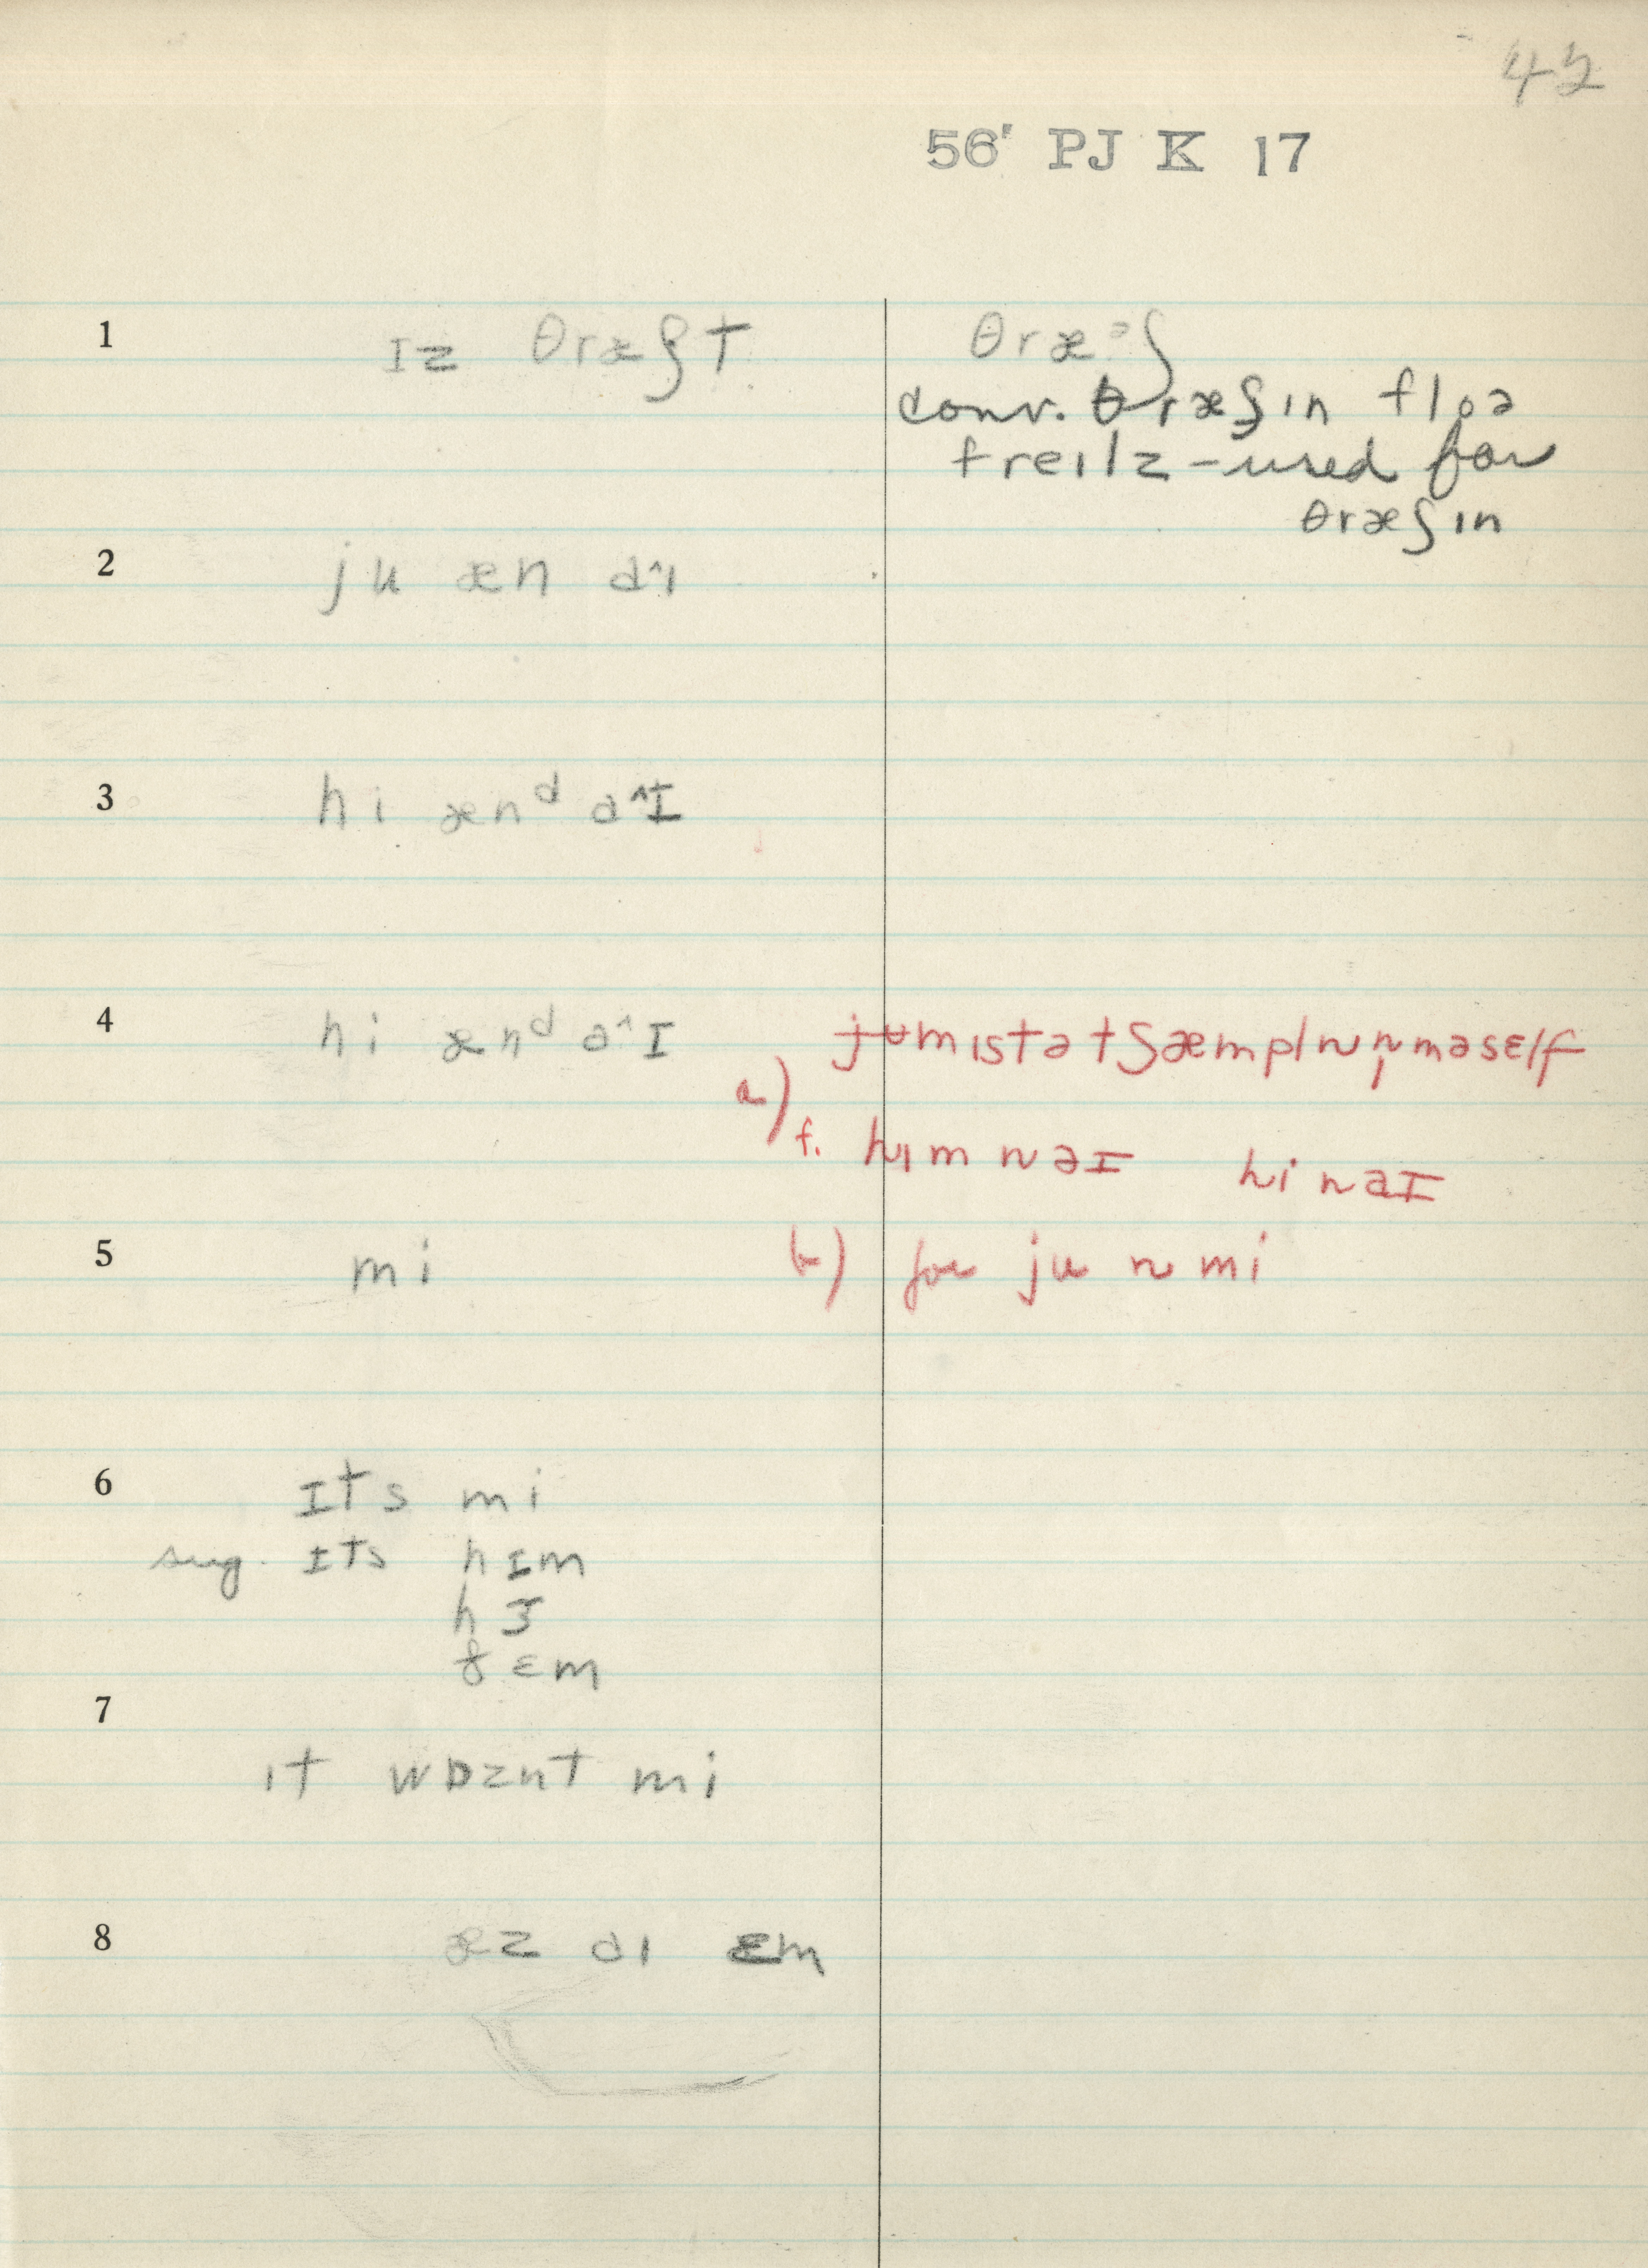 42
56' PJ K 17
1 ɪz θræʃt θræᵊʃ
conv. θræʃɪn floə
treɪlz – used for
θræʃɪn
2 ju æn a^ɪ
3 hi ænᵈ a^ɪ
4 hi ænᵈ a^ɪ jʉmɪstətʃæmpln n̩ maself
a) f. hɪm n aɪ hi n aɪ
5 mi b) for ju n mi
6 ɪts mi
sug. ɪts hɪm
hɜ
ðɛm
7
ɪt wɒznt mi
8 æz aɪ ɛm